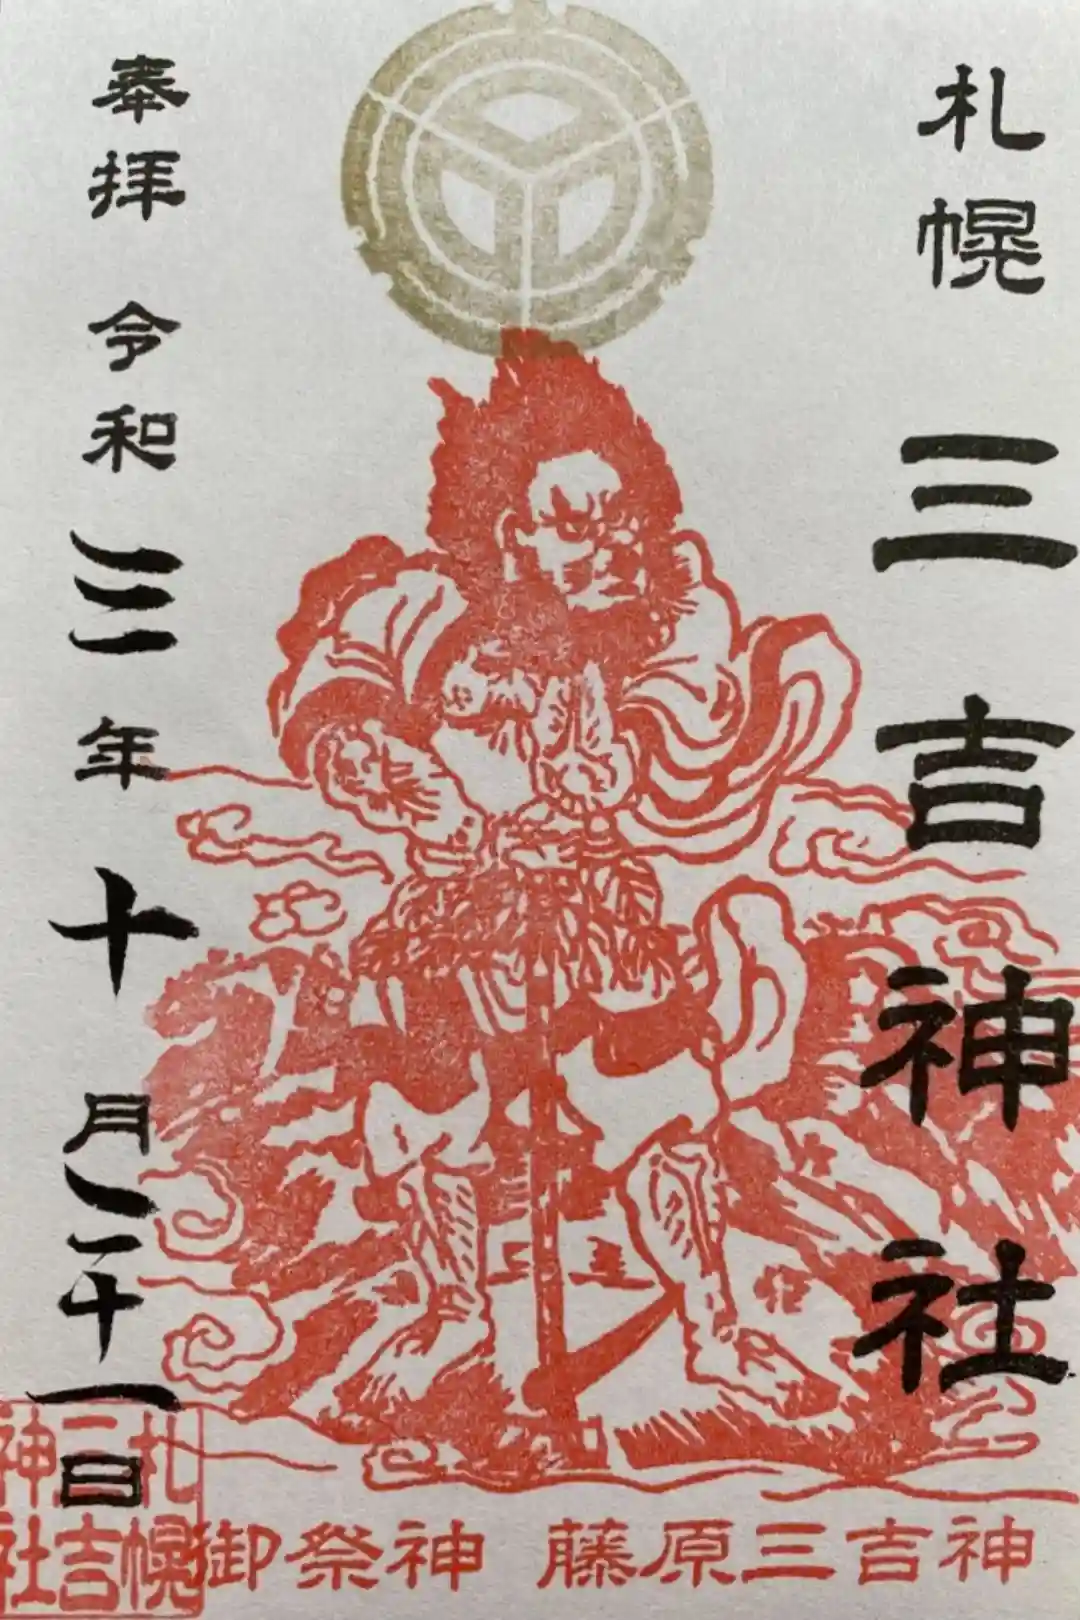 札幌三吉神社
奉拝 令和三年十月二十一日
御祭神 藤原三吉神
札幌
三吉
神社